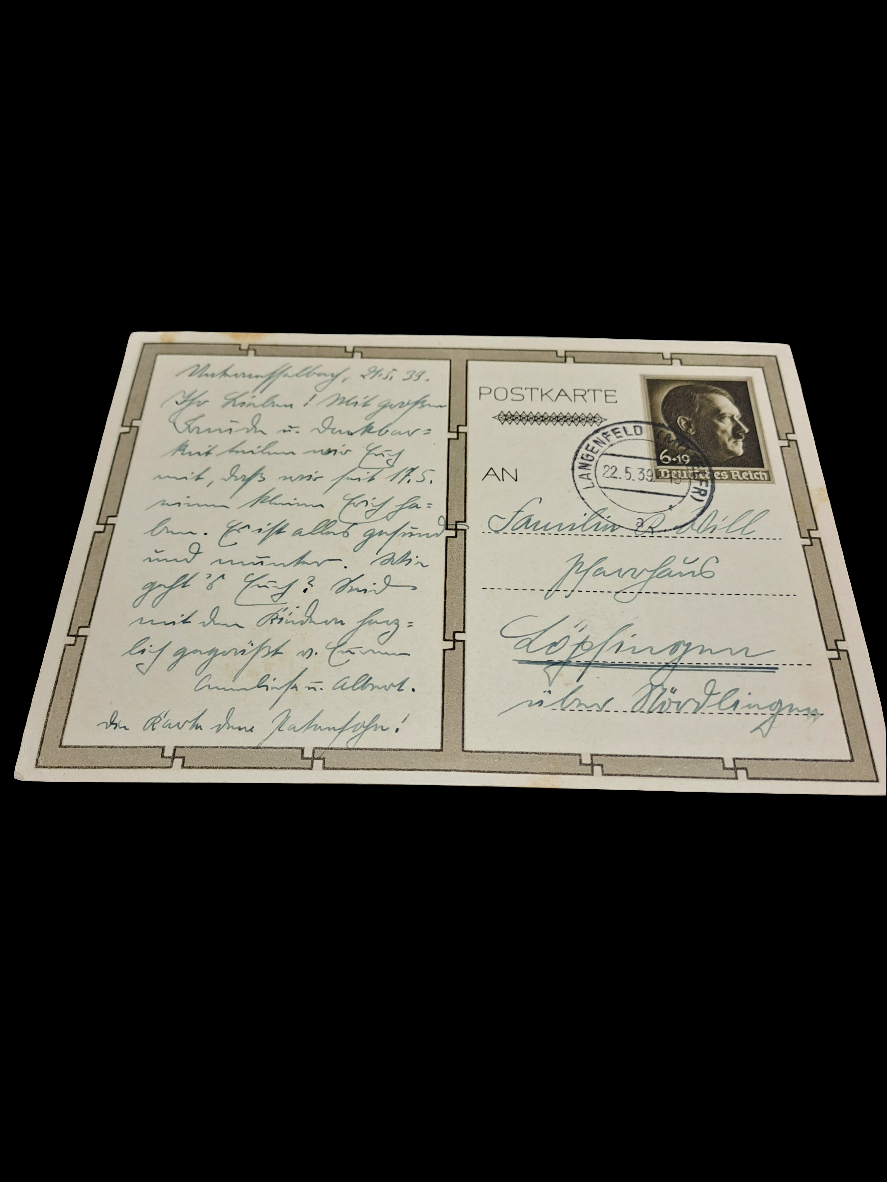 Unteraltenbernheim, 21.5.39.
Ihr Lieben! Mit großer
Freude u. Dankbar=
keit teilen wir Euch
mit, daß wir seit 17.5.
einen kleinen Erich ha=
ben. Es ist alles gesund
und munter. Wie
geht's Euch? Seid
mit den Kindern herz=
lich gegrüßt v. Euren
Annelies u. Albert.
die Karte dem Patensohn!
POSTKARTE
AN
6+19
Deutsches Reich
LANGENFELD
22.5.39
a
Familie R. Will
Pfarrhaus
Löpsingen
über Nördlingen